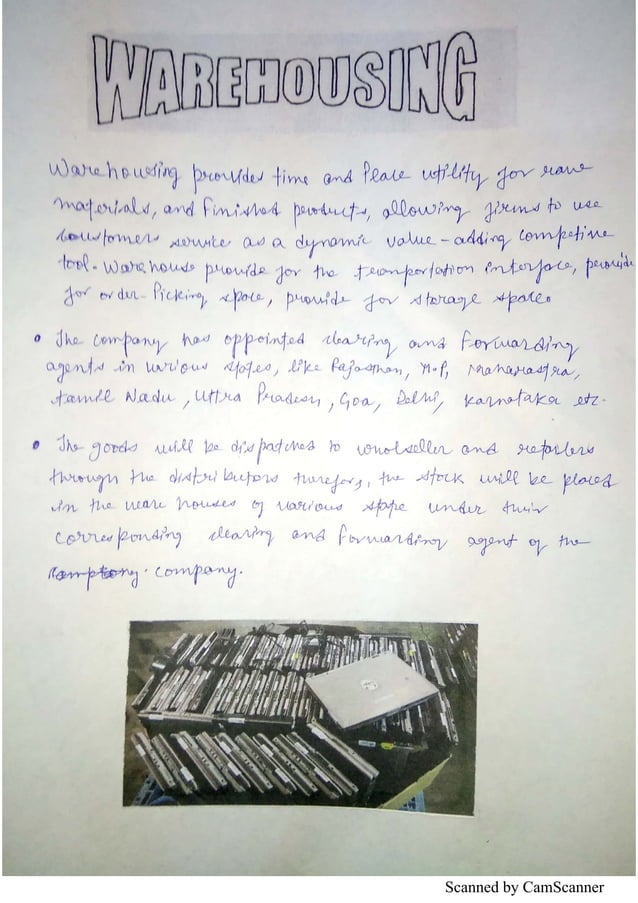 WAREHOUSING
Warehousing provides time and Place utility for raw
materials, and finished products, allowing firms to use
customers service as a dynamic value-adding competive
tool. Warehouse provide for the transportation interface, provide
for order-Picking space, provide for storage space.
• The company has appointed clearing and forwarding
agents in various states, like Rajasthan, M.P, Maharastra,
tamil Nadu, Uttra Pradesh, Goa, Delhi, Karnataka etc.
• The goods will be dispatched to wholseller and retailers
through the distributors therefore, the stock will be placed
in the ware houses of various state under their
corresponding clearing and forwarding agent of the
company.
Scanned by CamScanner